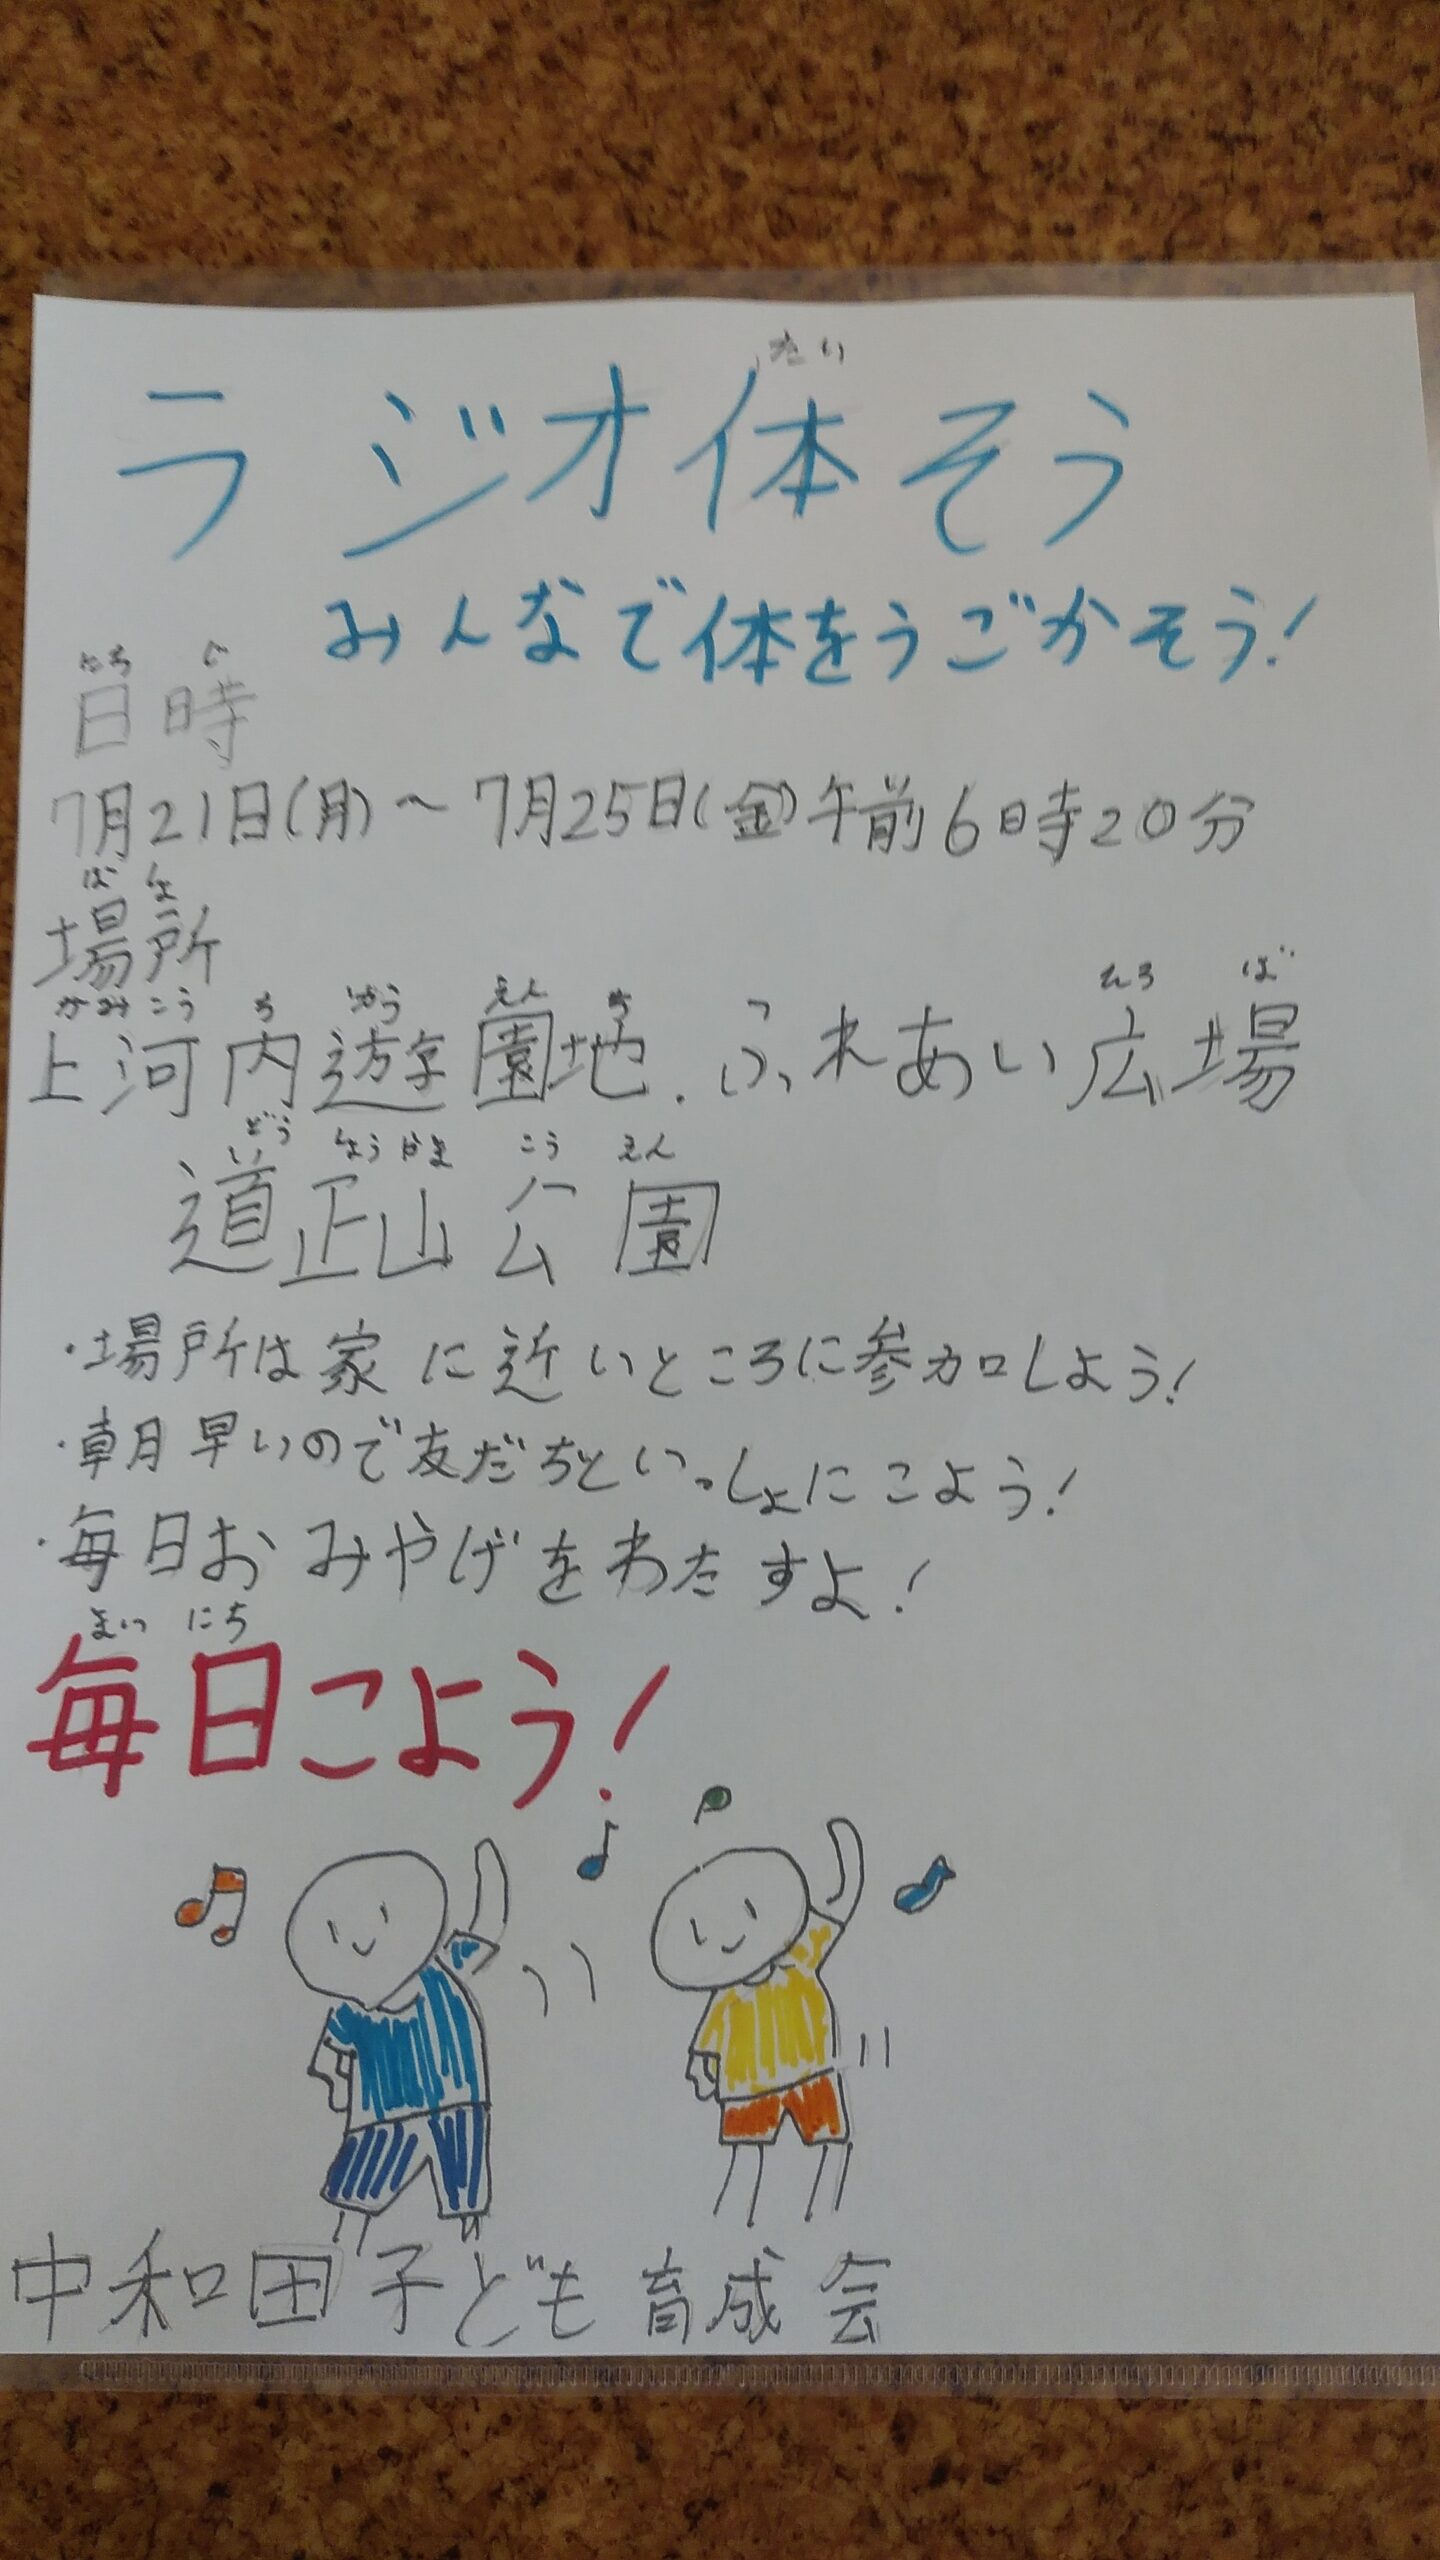 たい
ラジオ体そう
みんなで体をうごかそう!
にちじ
日時
7月21日(月)～7月25日(金)午前6時20分
ばしょ
場所
かみこうち ゆうえんち ひろば
上河内遊園地.ふれあい広場
どうしょうやまこうえん
道正山公園
・場所は家に近いところに参加しよう!
・朝早いので友だちといっしょにこよう!
・毎日おみやげをわたすよ!
まいにち
毎日こよう!
中和田子ども育成会